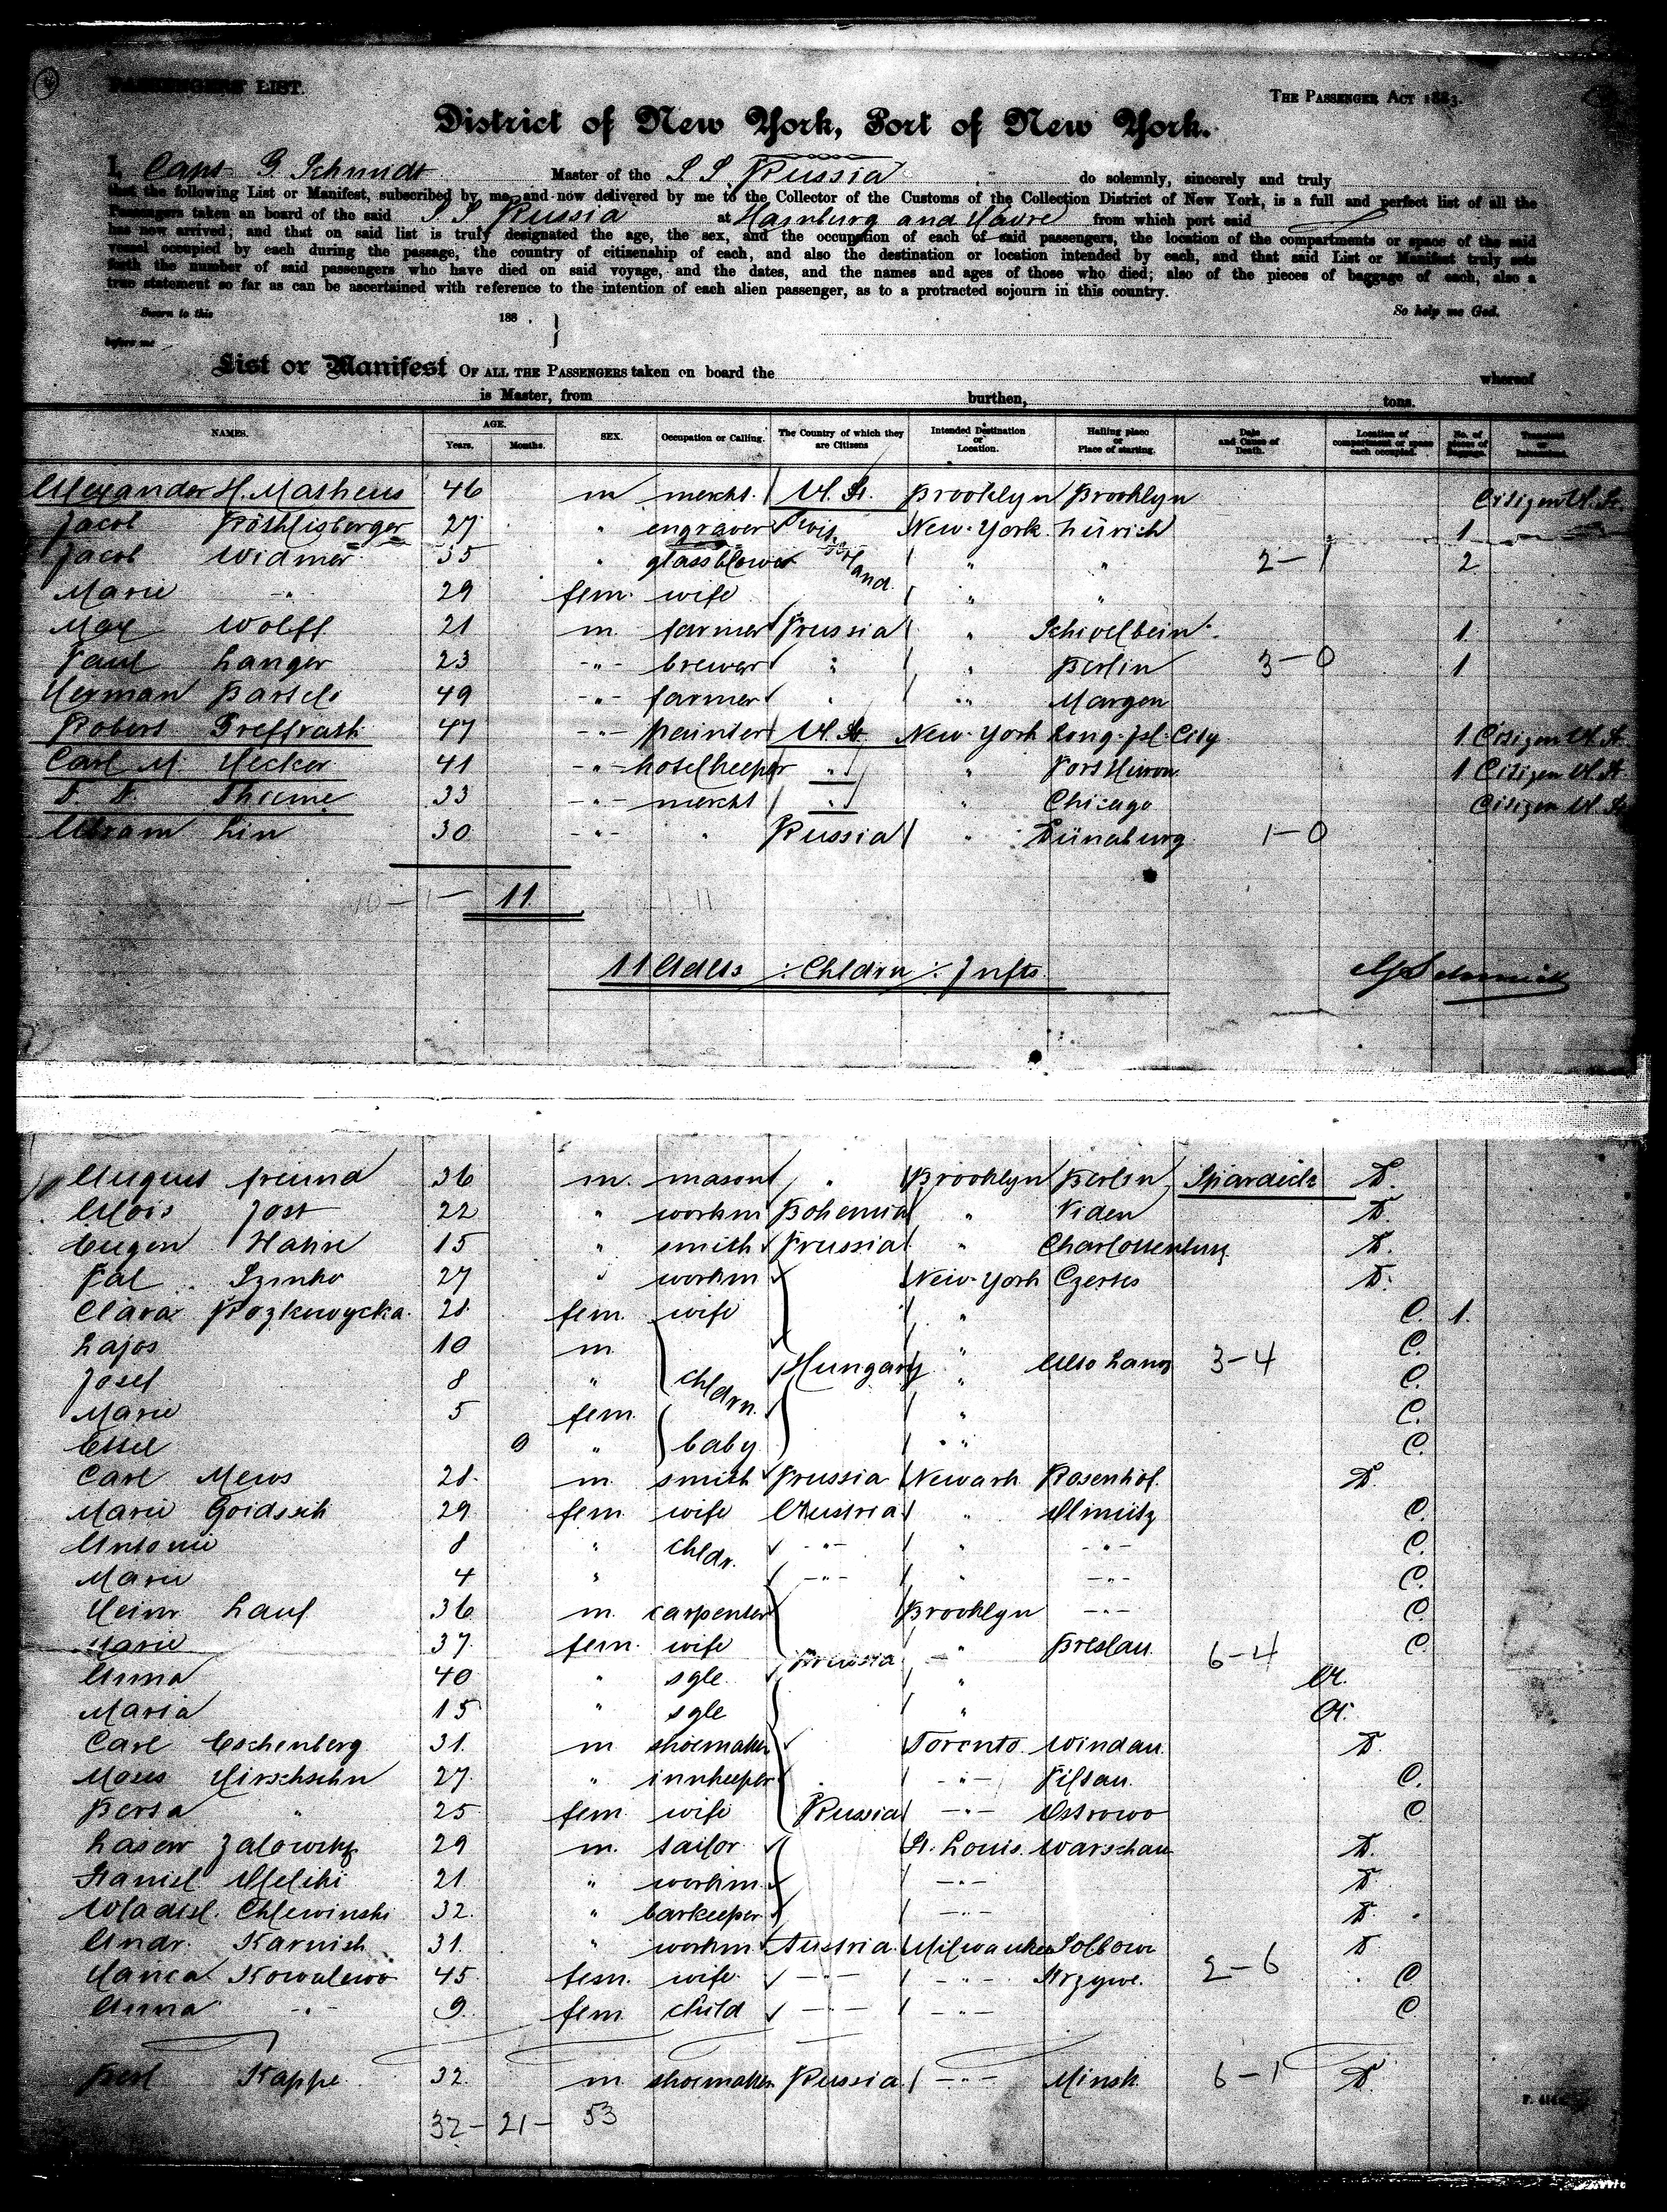 PASSENGERS LIST.
THE PASSENGER ACT 1883.
District of New York, Port of New York.
I, Capt G Schmidt Master of the S S Russia do solemnly, sincerely and truly
that the following List or Manifest, subscribed by me, and now delivered by me to the Collector of the Customs of the Collection District of New York, is a full and perfect list of all the
Passengers taken an board of the said S S Russia at Hamburg and Havre from which port said
has now arrived; and that on said list is truly designated the age, the sex, and the occupation of each of said passengers, the location of the compartments or space of the said
vessel occupied by each during the passage, the country of citizenship of each, and also the destination or location intended by each, and that said List or Manifest truly sets
forth the number of said passengers who have died on said voyage, and the dates, and the names and ages of those who died; also of the pieces of baggage of each, also a
true statement so far as can be ascertained with reference to the intention of each alien passenger, as to a protracted sojourn in this country.
Sworn to this 188 . So help me God.
before me
List or Manifest OF ALL THE PASSENGERS taken on board the whereof
is Master, from burthen, tons.
NAMES. AGE. Years. Months. SEX. Occupation or Calling. The Country of which they are Citizens Intended Destination or Location. Hailing place or Place of starting. Date and Cause of Death. Location of compartment or space each occupied. No. of pieces of Baggage.
Alexander H. Matheus 46 m mercht. U. St. Brooklyn Brooklyn Citizen U. St.
Jacob Röthlisberger 27 " engraver Switzerland New-York Zürich 1
Jacob Widmer 35 " glassblower " " 2-1 2
Marie -"- 29 fem. wife " "
Max Wolff 21 m. farmer Prussia " Schivelbein 1
Paul Langer 23 -"- brewer " " Berlin 3-0 1
Herman Bartels 49 -"- farmer " " Margen
Robert Greffrath 47 -"- painter U. St. New-York Long-Isl-City 1 Citizen U. St.
Carl M. Hecker 41 -"- hotelkeeper " " Port Huron 1 Citizen U. St.
Thieme 33 -"- mercht " " Chicago Citizen U. St.
Abram Lin 30 -"- " Russia " Dünaburg 1-0
10-1- 11 10-1-11
11 Adlts ./. Chldrn ./. Infts.
G Schmidt
August Freund 36 m. mason " Brooklyn Berlin D.
Alois Jost 22 " workm Bohemia " Viden D.
Eugen Hahn 15 " smith Prussia " Charlottenburg D.
Pal Szinko 27 " workm New-York Czertes D.
Clara Rozkowycka 28 fem. wife " C. 1.
Lajos 10 m " C.
Josef 8 " chldrn. Hungary " Also 3-4 C.
Marie 5 fem. " C.
Etel 9 " baby " C.
Carl Mews 28 m. smith Prussia Newark Rosenhof. D.
Marie 29 fem. wife Austria " Olmütz C.
Antonie 8 " chldr. -"- " -"- C.
Marie 4 " -"- " -"- C.
Heinr. Lauf 36 m. carpenter Brooklyn -"- C.
Marie 37 fem. wife Prussia " Breslau 6-4 C.
Anna 40 " sgle " A.
Maria 15 " sgle " A.
Carl Eschenberg 31. m shoemaker Toronto Windau. D.
Moses Hirschohn 27 " innkeeper -"- Piltau. C.
Berta " 25 fem. wife Russia -"- Ostrowo C
Laser Zalowsky 29 m. tailor St. Louis. Warschau D.
Daniel 21 " workm. -"- D.
Wladisl. Chlewinski 32. " barkeeper -"- D.
Andr. Karnish 31. " workm Austria Milwaukee D
Hanca Kowalewo 45 fem. wife -"- -"- Krzywe. 2-6 C
Anna -"- 9 fem. child -"- -"- C
Berl Kappe 32. m shoemaker Russia -"- Minsk. 6-1 D.
32- 21- 53